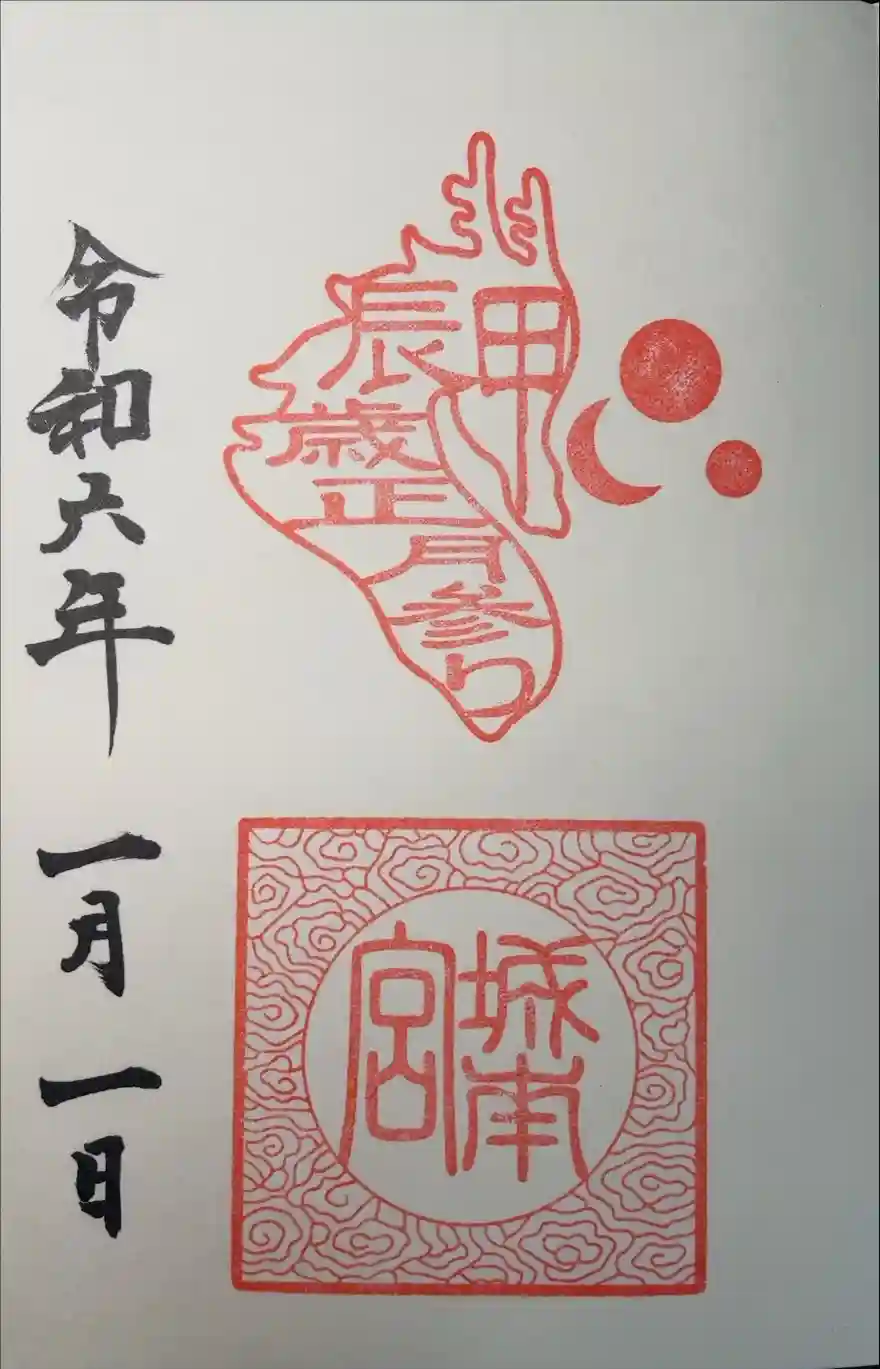 甲辰歳正月参り
城南宮
令和六年 一月 一日